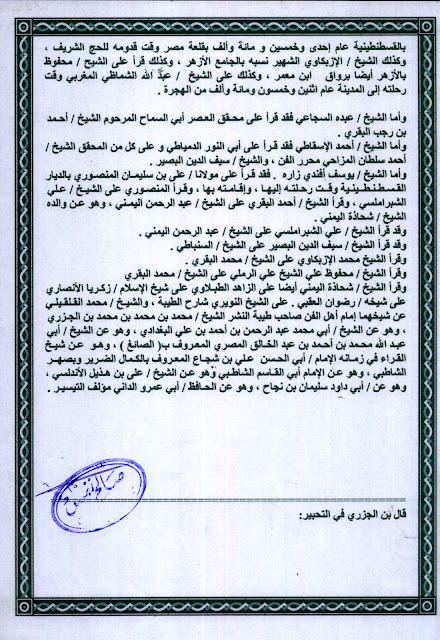 بالقسطنطينية عام إحدى وخمسين و مائة وألف بقلعة مصر وقت قدومه للحج الشريف ،
وكذلك الشيخ / الإزبكاوي الشهير نسبه بالجامع الأزهر ، وكذلك قرأ على الشيخ / محفوظ
بالأزهر أيضا برواق ابن معمر ، وكذلك على الشيخ / عبد الله الشماظي المغربي وقت
رحلته إلى المدينة عام اثنين وخمسون ومائة وألف من الهجرة .
وأما الشيخ / عبده السجاعي فقد قرأ على محقق العصر أبي السماح المرحوم الشيخ / أحمد
بن رجب البقري .
وأما الشيخ / أحمد الإسقاطي فقد قرأ على أبي النور الدمياطي و على كل من المحقق الشيخ /
أحمد سلطان المزاحي محرر الفن ، والشيخ / سيف الدين البصير .
وأما الشيخ / يوسف أفندي زاره . فقد قرأ على مولانا / على بن سليمان المنصوري بالديار
القسطنطينية وقت رحلته إليها ، وإقامته بها ، وقرأ المنصوري على الشيخ / علي
الشبراملسي ، وقرأ أحمد البقري على الشيخ / عبد الرحمن اليمني ، وهو عن والده
الشيخ / شحاذة اليمني .
وقد قرأ الشيخ / علي الشبراملسي على الشيخ / عبد الرحمن اليمني .
وقد قرأ الشيخ / سيف الدين البصير على الشيخ / السنباطي .
وقرأ الشيخ محمد الإزبكاوي على الشيخ / محمد البقري .
وقرأ الشيخ / محفوظ علي الشيخ علي الرملي على الشيخ / محمد البقري
وقرأ الشيخ / شحاذة اليمني أيضا على الزاهد الطبلاوي على شيخ الإسلام / زكريا الأنصاري
على شيخه / رضوان العقبي . على الشيخ النويري شارح الطيبة ، والشيخ / محمد القلقيلي
عن شيخهما إمام أهل الفن صاحب طيبة النشر الشيخ / محمد بن محمد بن محمد بن الجزري
، وهو عن الشيخ / أبي محمد عبد الرحمن بن أحمد بن علي البغدادي ، وهو عن الشيخ / أبي
عبد الله محمد بن أحمد بن عبد الخالق المصري المعروف ب( الصائغ ) ، وهو عن شيخ
القراء في زمانه الإمام / أبي الحسن علي بن شجاع المعروف بالكمال الضرير وبصهر
الشاطبي ، وهو عن الإمام أبي القاسم الشاطبي وهو عن الشيخ / على بن هذيل الأندلسي ،
وهو عن / أبي داود سليمان بن نجاح ، وهو عن الحافظ / أبي عمرو الداني مؤلف التيسير .
قال بن الجزري في التحبير: